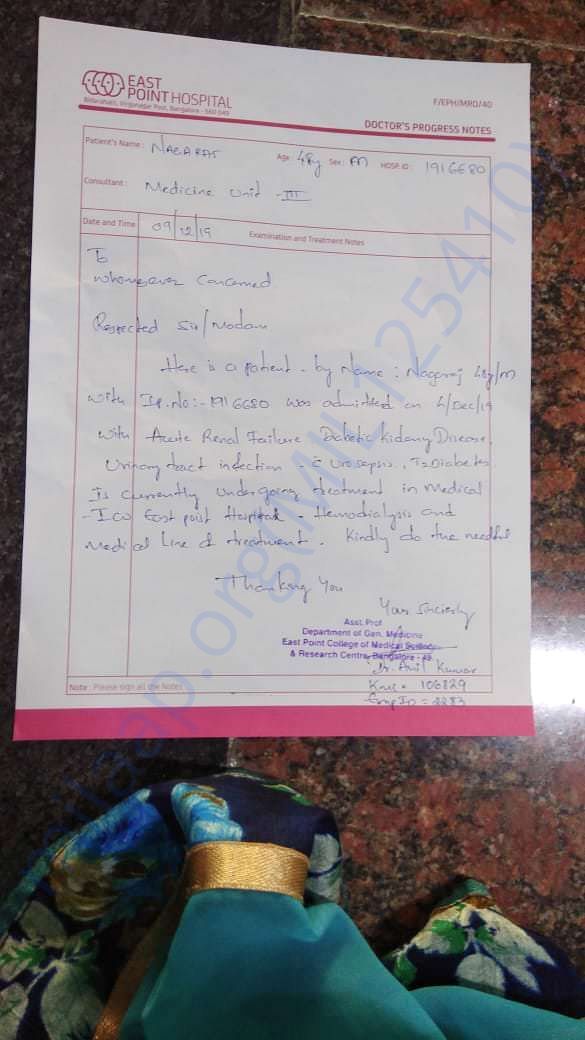 EAST
POINT HOSPITAL
Bidarahalli, Virgonagar Post, Bangalore - 560 049
F/EPH/MRD/40
DOCTOR'S PROGRESS NOTES
Patient's Name : NAGARAJ Age : 48y Sex : M HOSP. ID : 1916680
Consultant : Medicine Unit - III
Date and Time 09/12/19 Examination and Treatment Notes
To
Whomsoever Concerned
Respected Sir/Madam
Here is a patient - by Name : Nagaraj 48y/M
with Ip.No:- 1916680 was admitted on 4/Dec/19
with Acute Renal Failure, Diabetic Kidany Disease,
Urinary tract infection - c̄ Urosepsis, T2Diabetes.
Is currently undergoing treatment in Medical
- ICU East point Hospital - Hemodialysis and
Medical Line of treatment. Kindly do the needful
Thanking You
Your Sincierly
Asst. Prof
Department of Gen. Medicine
East Point College of Medical Sciences
& Research Centre, Bangalore - 49.
Dr. Anil Kumar
KMC = 106829
Emp ID = 2283
Note : Please sign all the Notes
milaap.org(MIL1254101)